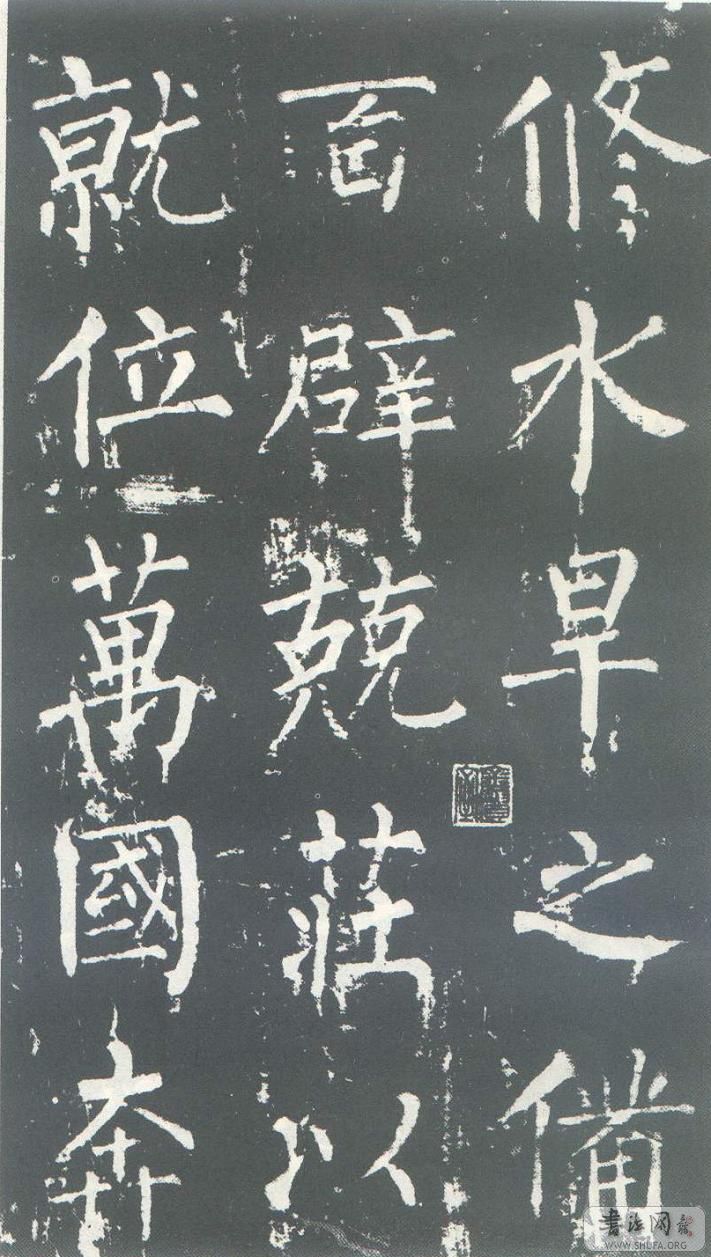 修水旱之備
百辟兢莊以
就位萬國奔
WWW.SHUFA.ORG